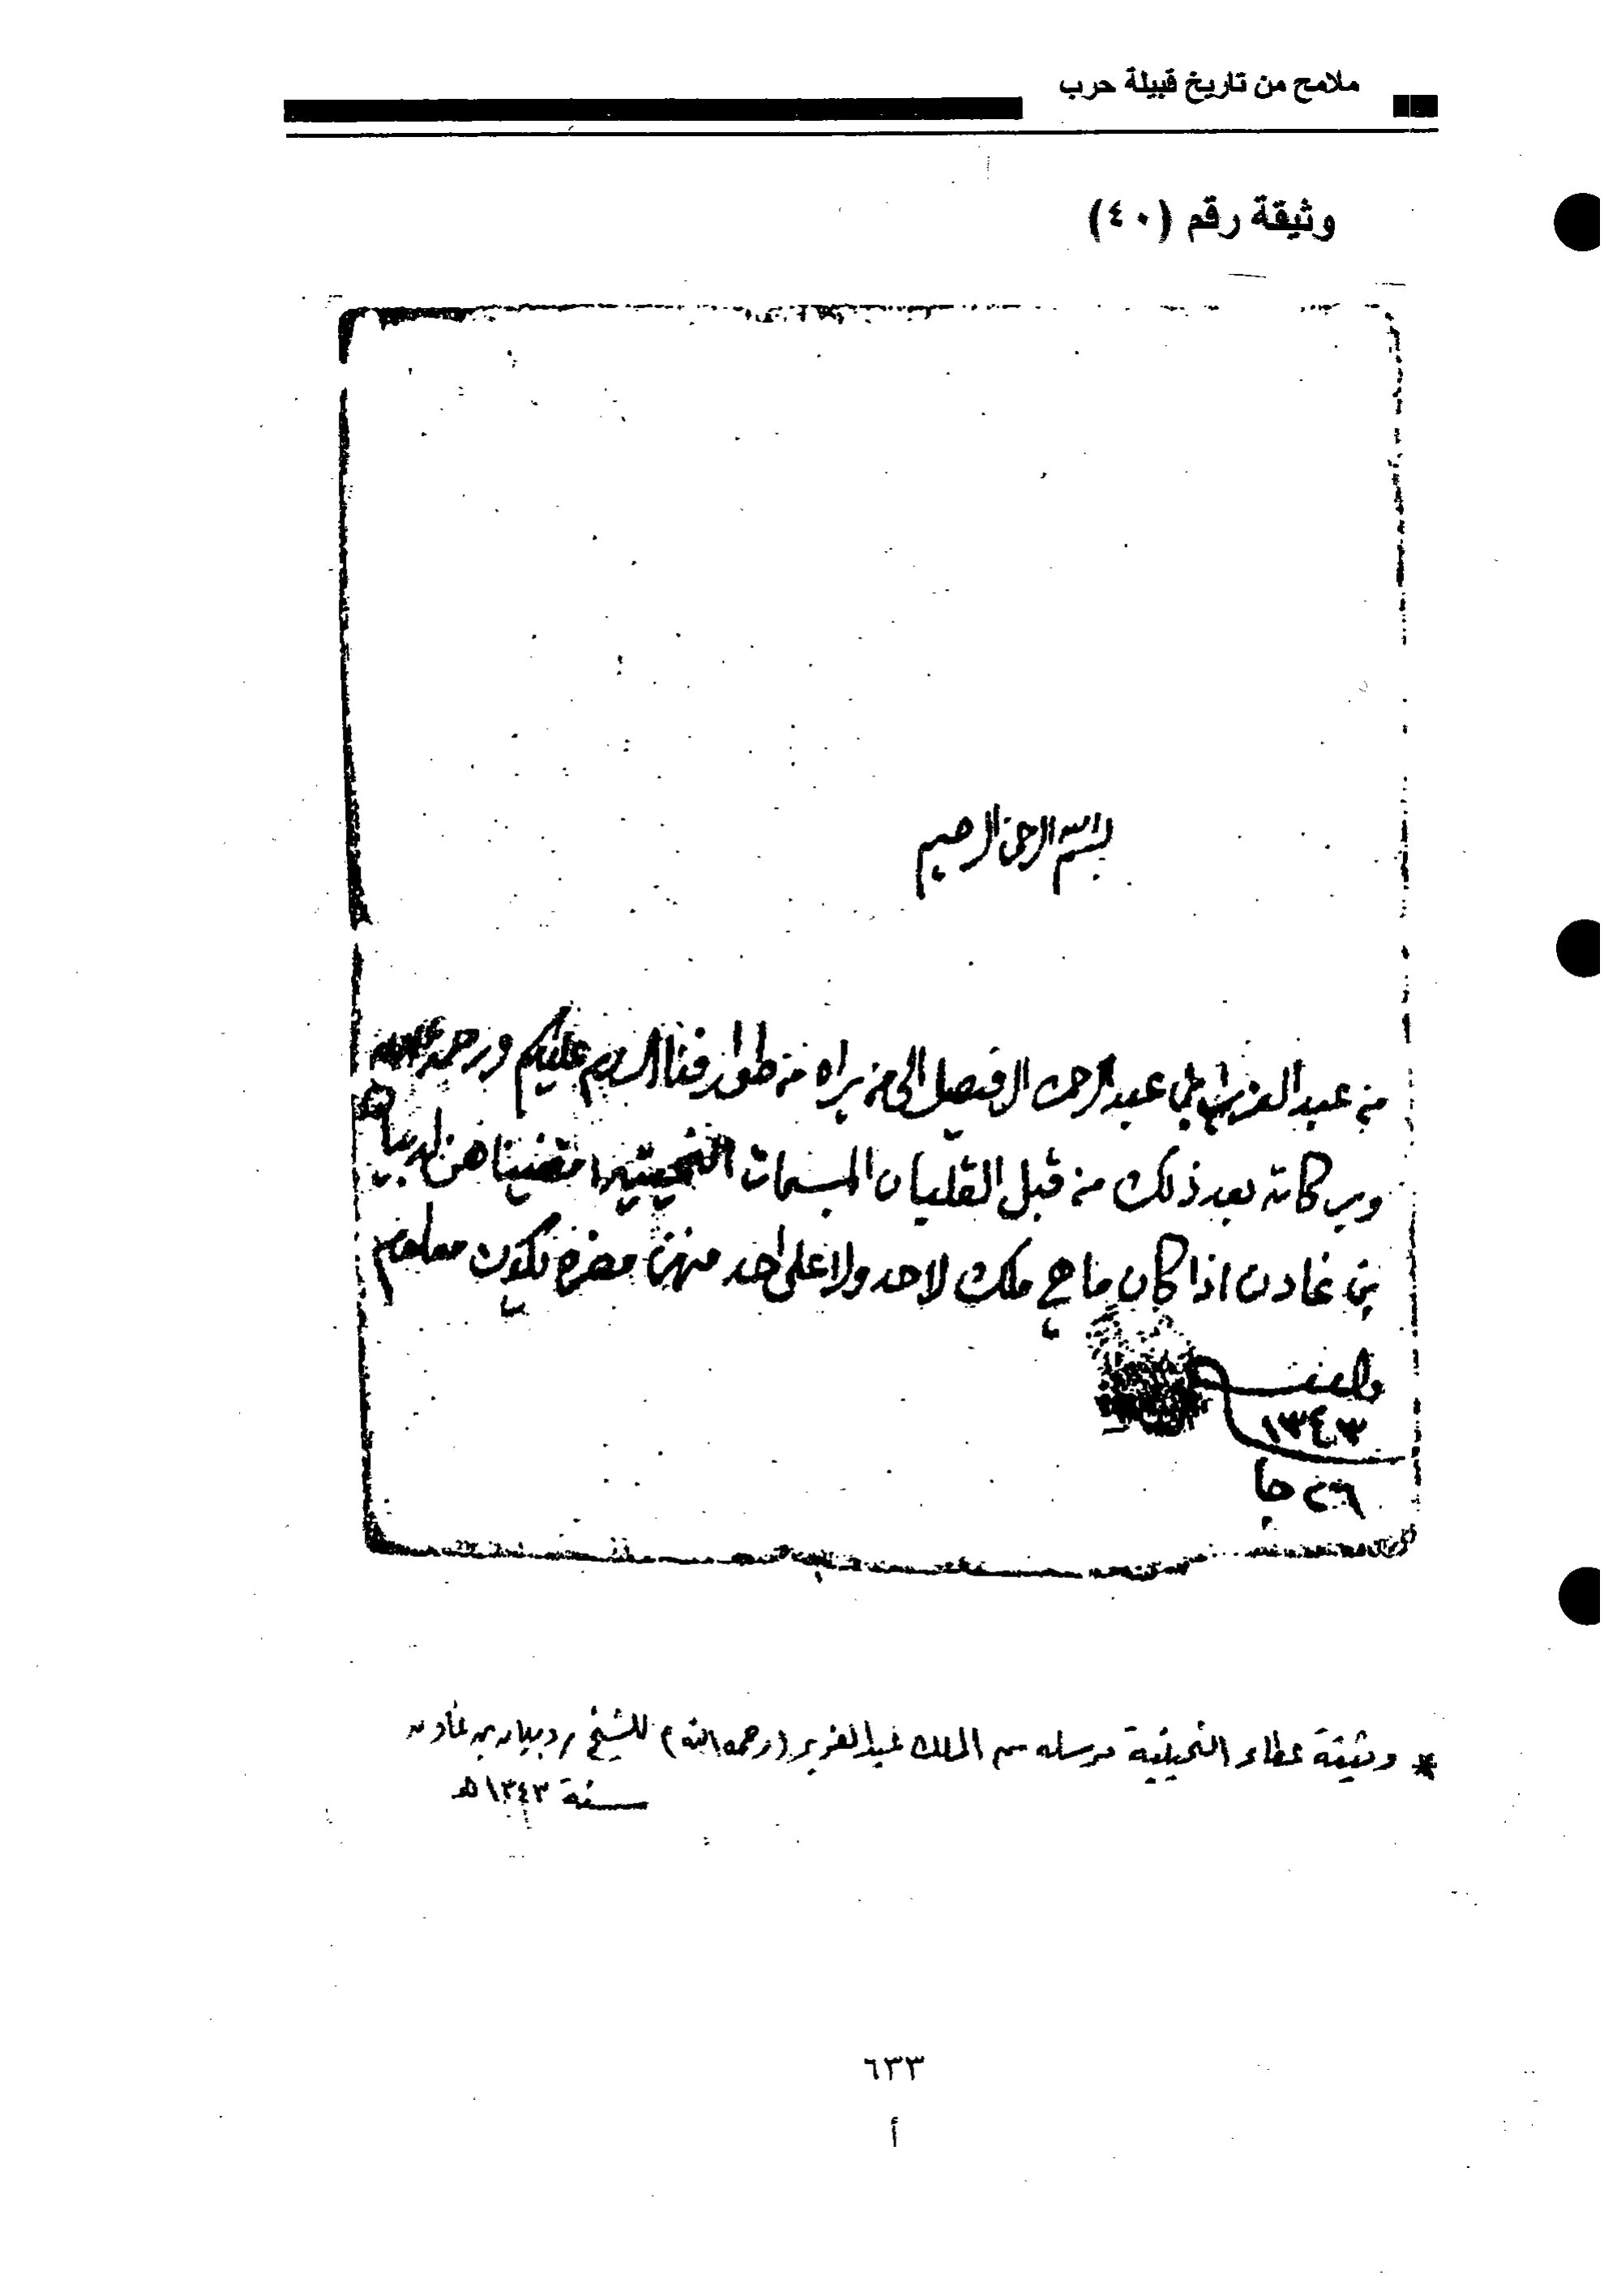 ملامح من تاريخ قبيلة حرب
وثيقة رقم (٤٠)
بسم الله الرحمن الرحيم
من عبد العزيز بن عبد الرحمن ال فيصل الى من يراه من طوارفنا السلام عليكم ورحمة الله
وبركاته بعد ذلك من قبل القلبان المسمات مضيناهن
بن غادن اذا كان ما هي ملك لاحد ولا على احد منهن مضره يكون معلوم
١٣٤٣
٢٦ جا
* وثيقة عطاء مرسله من الملك عبدالعزيز (رحمه الله) للشيخ بن غادن
سنة ١٣٤٣ هـ
٦٣٣
أ